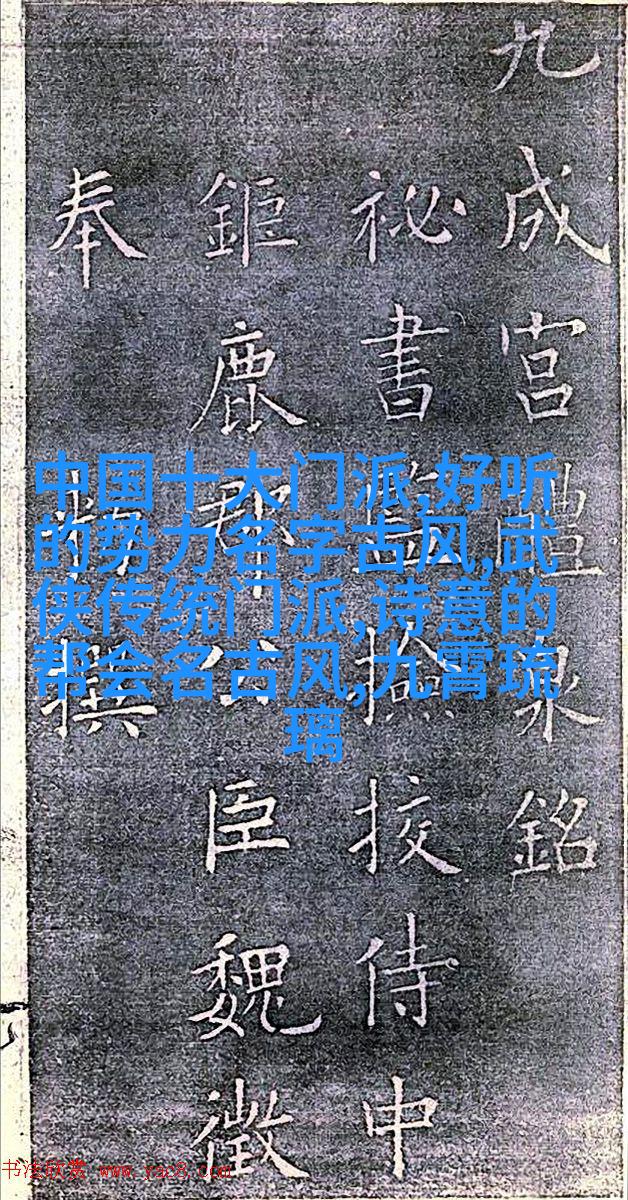 九成宮醴泉銘
祕書監撿挍侍中
鉅鹿郡公臣魏徵
奉勅撰
中国十大门派,好听
的势力名字古风,武
侠传统门派,诗意的
帮会名古风,九霄琉
璃
书法欣赏 www.yac8.com